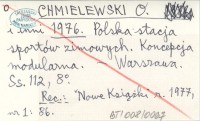 CHMIELEWSKI O.
i inni 1976. Polska stacja
sportów zimowych. Koncepcja
modularna. - Warszawa.
Ss. 112, 8°.
Rec.: "Nowe Książki" r. 1977,
nr 1: 86.